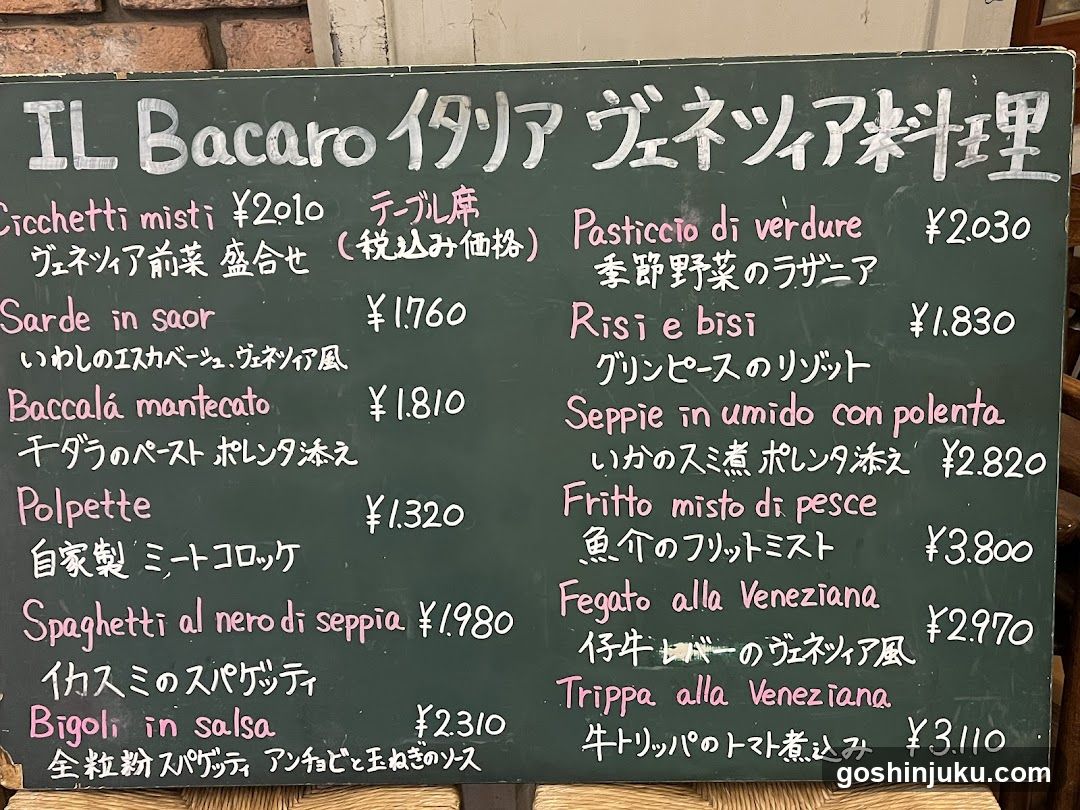 IL Bacaro イタリア ヴェネツィア料理
Cicchetti misti ¥2010 テーブル席
ヴェネツィア前菜 盛合せ (税込み価格)
Sarde in saor ¥1.760
いわしのエスカベーシュ、ヴェネツィア風
Baccalá mantecato ¥1.810
干ダラのペースト ポレンタ添え
Polpette ¥1.320
自家製 ミートコロッケ
Spaghetti al nero di seppia ¥1.980
イカスミのスパゲッティ
Bigoli in salsa ¥2.310
全粒粉スパゲッティ アンチョビと玉ねぎのソース
Pasticcio di verdure ¥2.030
季節野菜のラザニア
Risi e bisi ¥1.830
グリンピースのリゾット
Seppie in umido con polenta
いかのスミ煮 ポレンタ添え ¥2.820
Fritto misto di pesce
魚介のフリットミスト ¥3.800
Fegato alla Veneziana
仔牛レバーのヴェネツィア風 ¥2.970
Trippa alla Veneziana
牛トリッパのトマト煮込み ¥3.110
goshinjuku.com